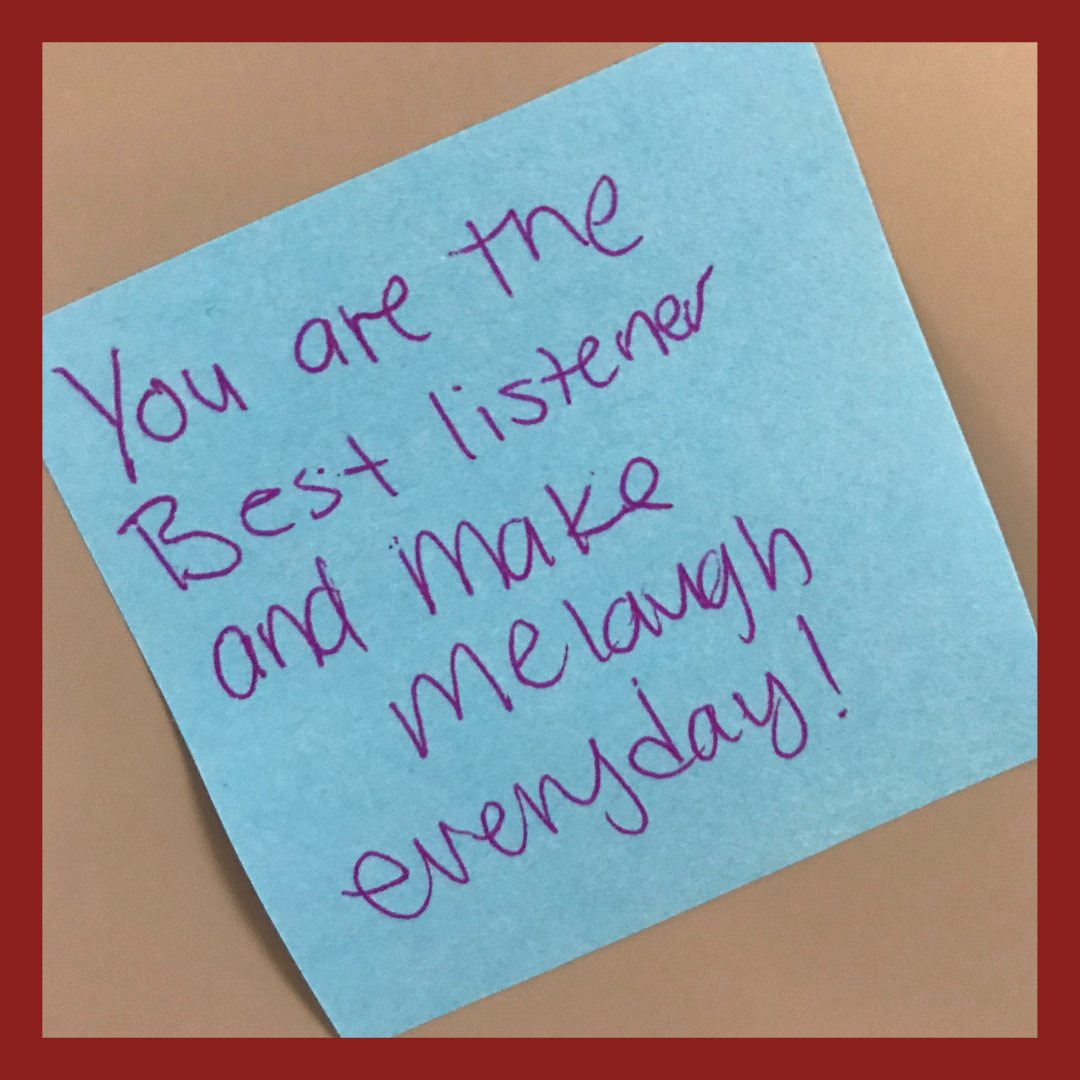 You are the
Best listener
and make
me laugh
everyday!